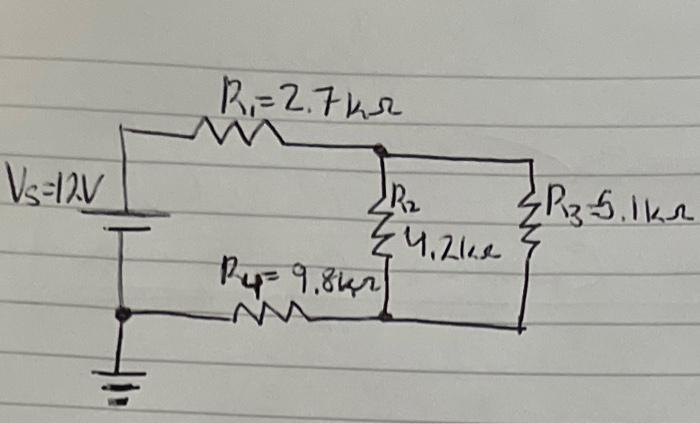 R₁=2.7kΩ
Vs=12V
R₂
4.2kΩ
R3=5.1kΩ
R4=9.8kΩ